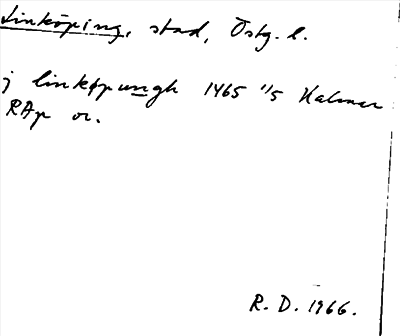 Linköping, stad, Östg. l.
j linkøpungh 1465 11/5 Kalmar
RAp or.
R. D. 1966.